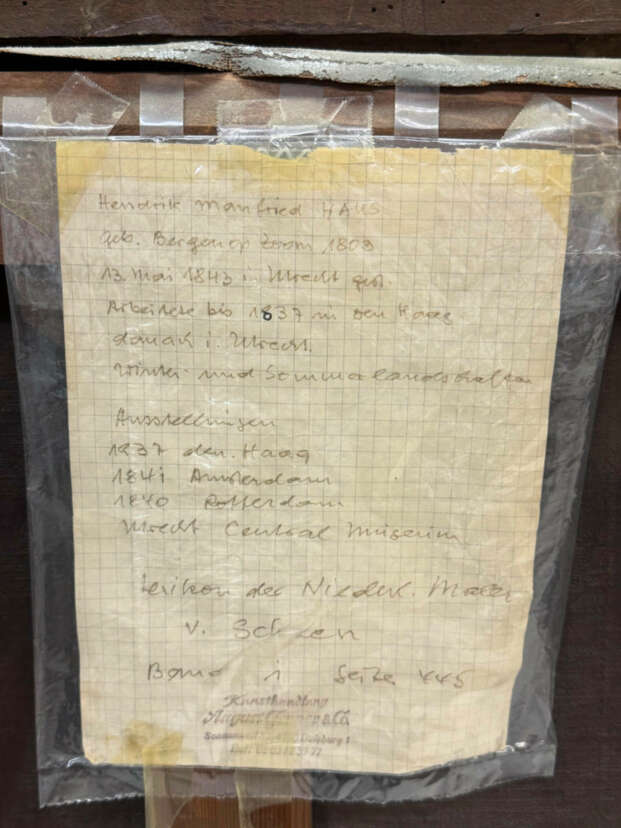 Hendrik Manfried HAUS
geb. Bergen op Zoom 1809
13. Mai 1843 in Utrecht gest.
Arbeitete bis 1837 in Den Haag
danach i. Utrecht.
Winter und Sommerlandschaften
Ausstellungen
1837 den. Haag
1841 Amsterdam
1840 Rotterdam
Utrecht Central Museum
Lexikon der Niederl. Maler
v. Scheen
Band 1 Seite 445
Kunsthandlung
August